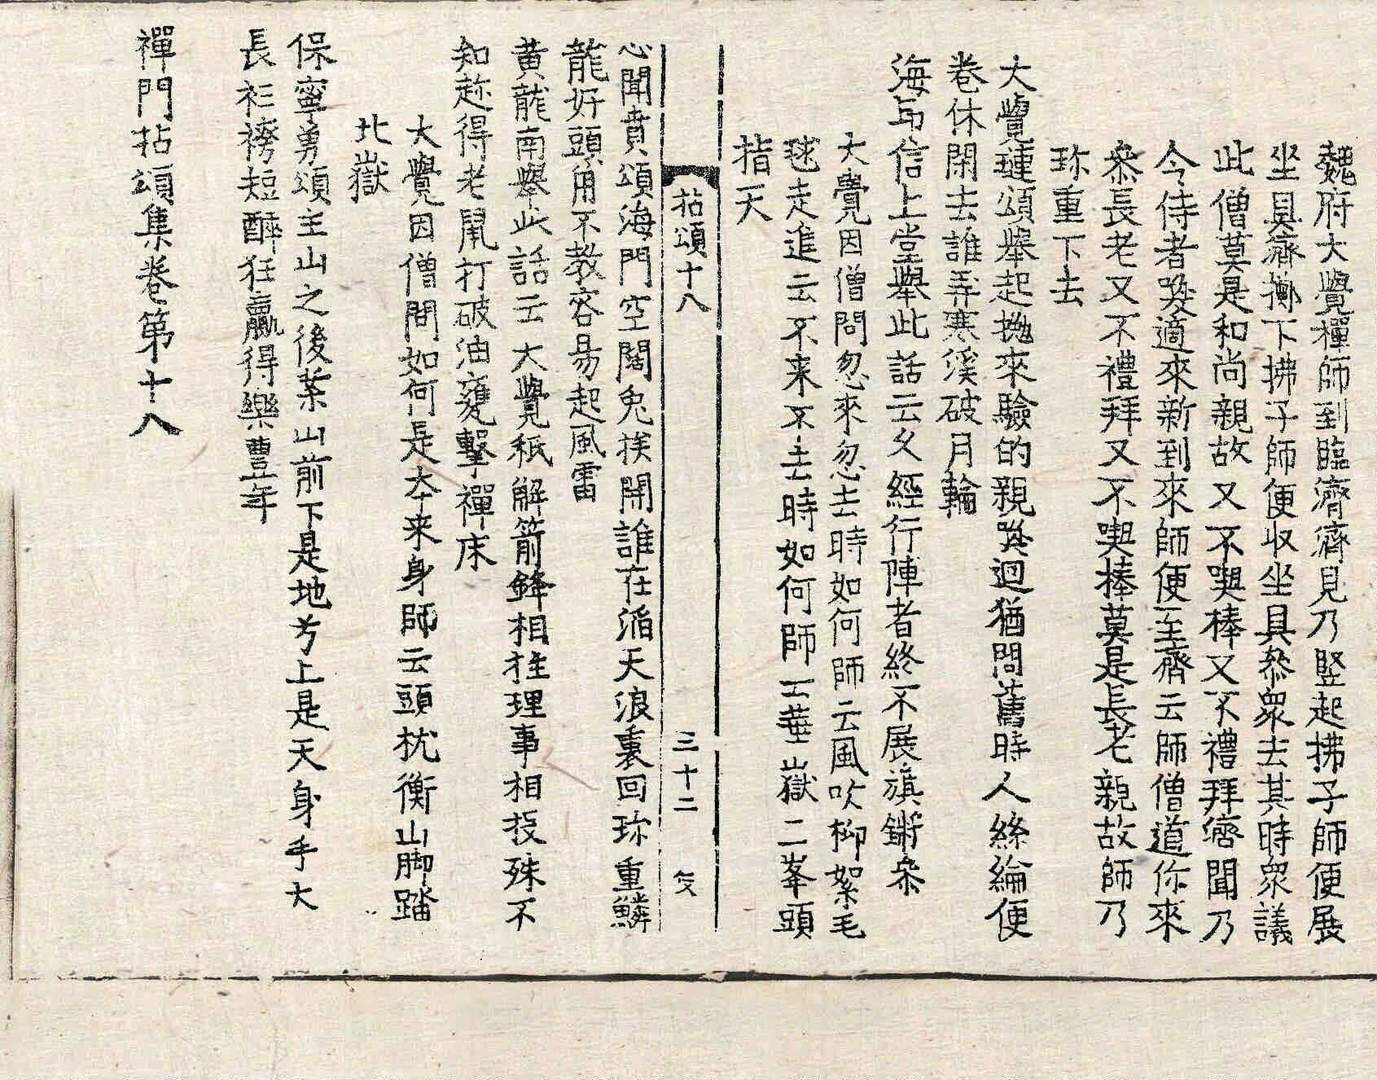 魏府大覺禪師到臨濟濟見乃竪起拂子師便展
坐具濟擲下拂子師便収坐具叅衆去其時衆議
此僧莫是和尚親故又不喫棒又不禮拜濟聞乃
令侍者喚適來新到來師便至濟云師僧道你來
叅長老又不禮拜又不喫棒莫是長老親故師乃
珎重下去
大覺璉頌擧起拋來驗的親迴猶問舊時人絲綸便
卷休閑去誰弄寒溪破月輪
海印信上堂擧此話云久經行陣者終不展旗鏘叅
大覺因僧問忽來忽去時如何師云風吹柳絮毛
毬走進云不来不去時如何師云華嶽二峯頭
指天
拈頌十八
三十二
心聞賁頌海門空闊兔挨開誰在滔天浪裏回珎重鱗
龍好頭角不教容易起風雷
黄龍南擧此話云大覺秖解箭鋒相拄理事相投殊不
知趂得老鼠打破油甕擊禪床
大覺因僧問如何是本来身師云頭枕衡山脚踏
北嶽
保寧勇頌主山之後案山前下是地兮上是天身手大
長衫袴短醉狂贏得樂豊年
禪門拈頌集卷第十八